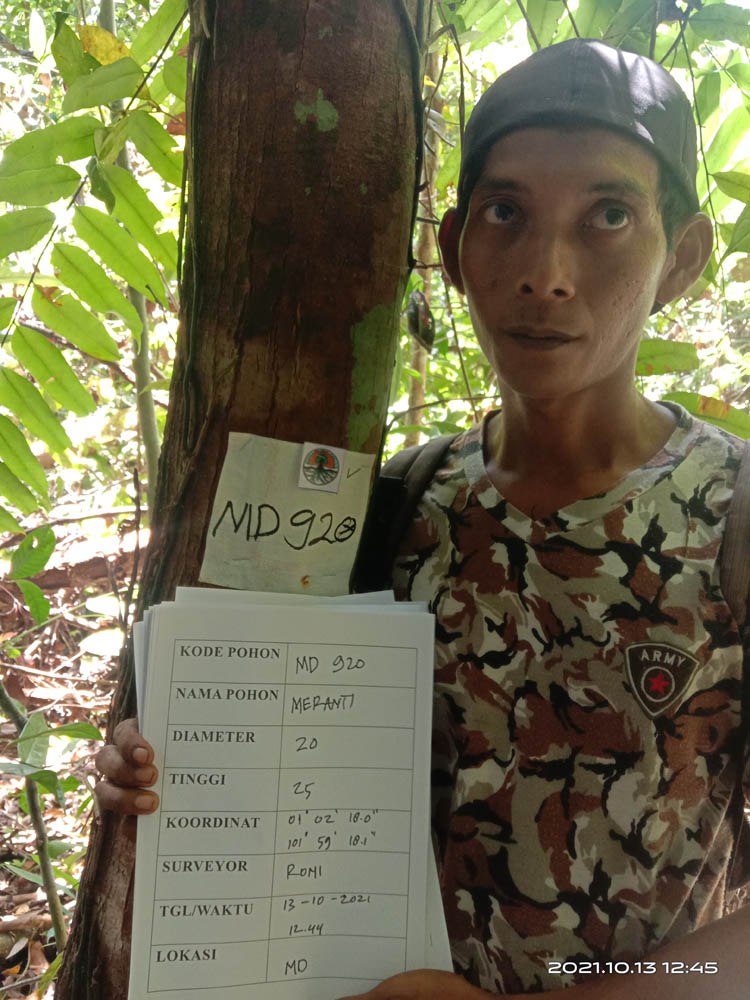 MD 920
KODE POHON MD 920
NAMA POHON MERANTI
DIAMETER 20
TINGGI 25
KOORDINAT 01° 02' 18.0"
101° 59' 18.1"
SURVEYOR ROMI
TGL/WAKTU 13-10-2021
12.44
LOKASI MD
ARMY
2021.10.13 12:45